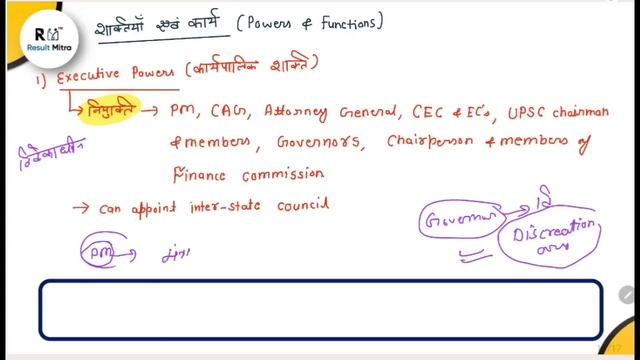 R
Result Mitra
शक्तियाँ एवं कार्य (Powers & Functions)
1) Executive Powers (कार्यपालिक शक्ति)
नियुक्ति → PM, CAG, Attorney General, CEC & EC's, UPSC chairman
& members, Governors, Chairperson & members of
Finance commission
विवेकाधीन
→ can appoint inter-state council
Governor → वि
Discreation
PM →
17